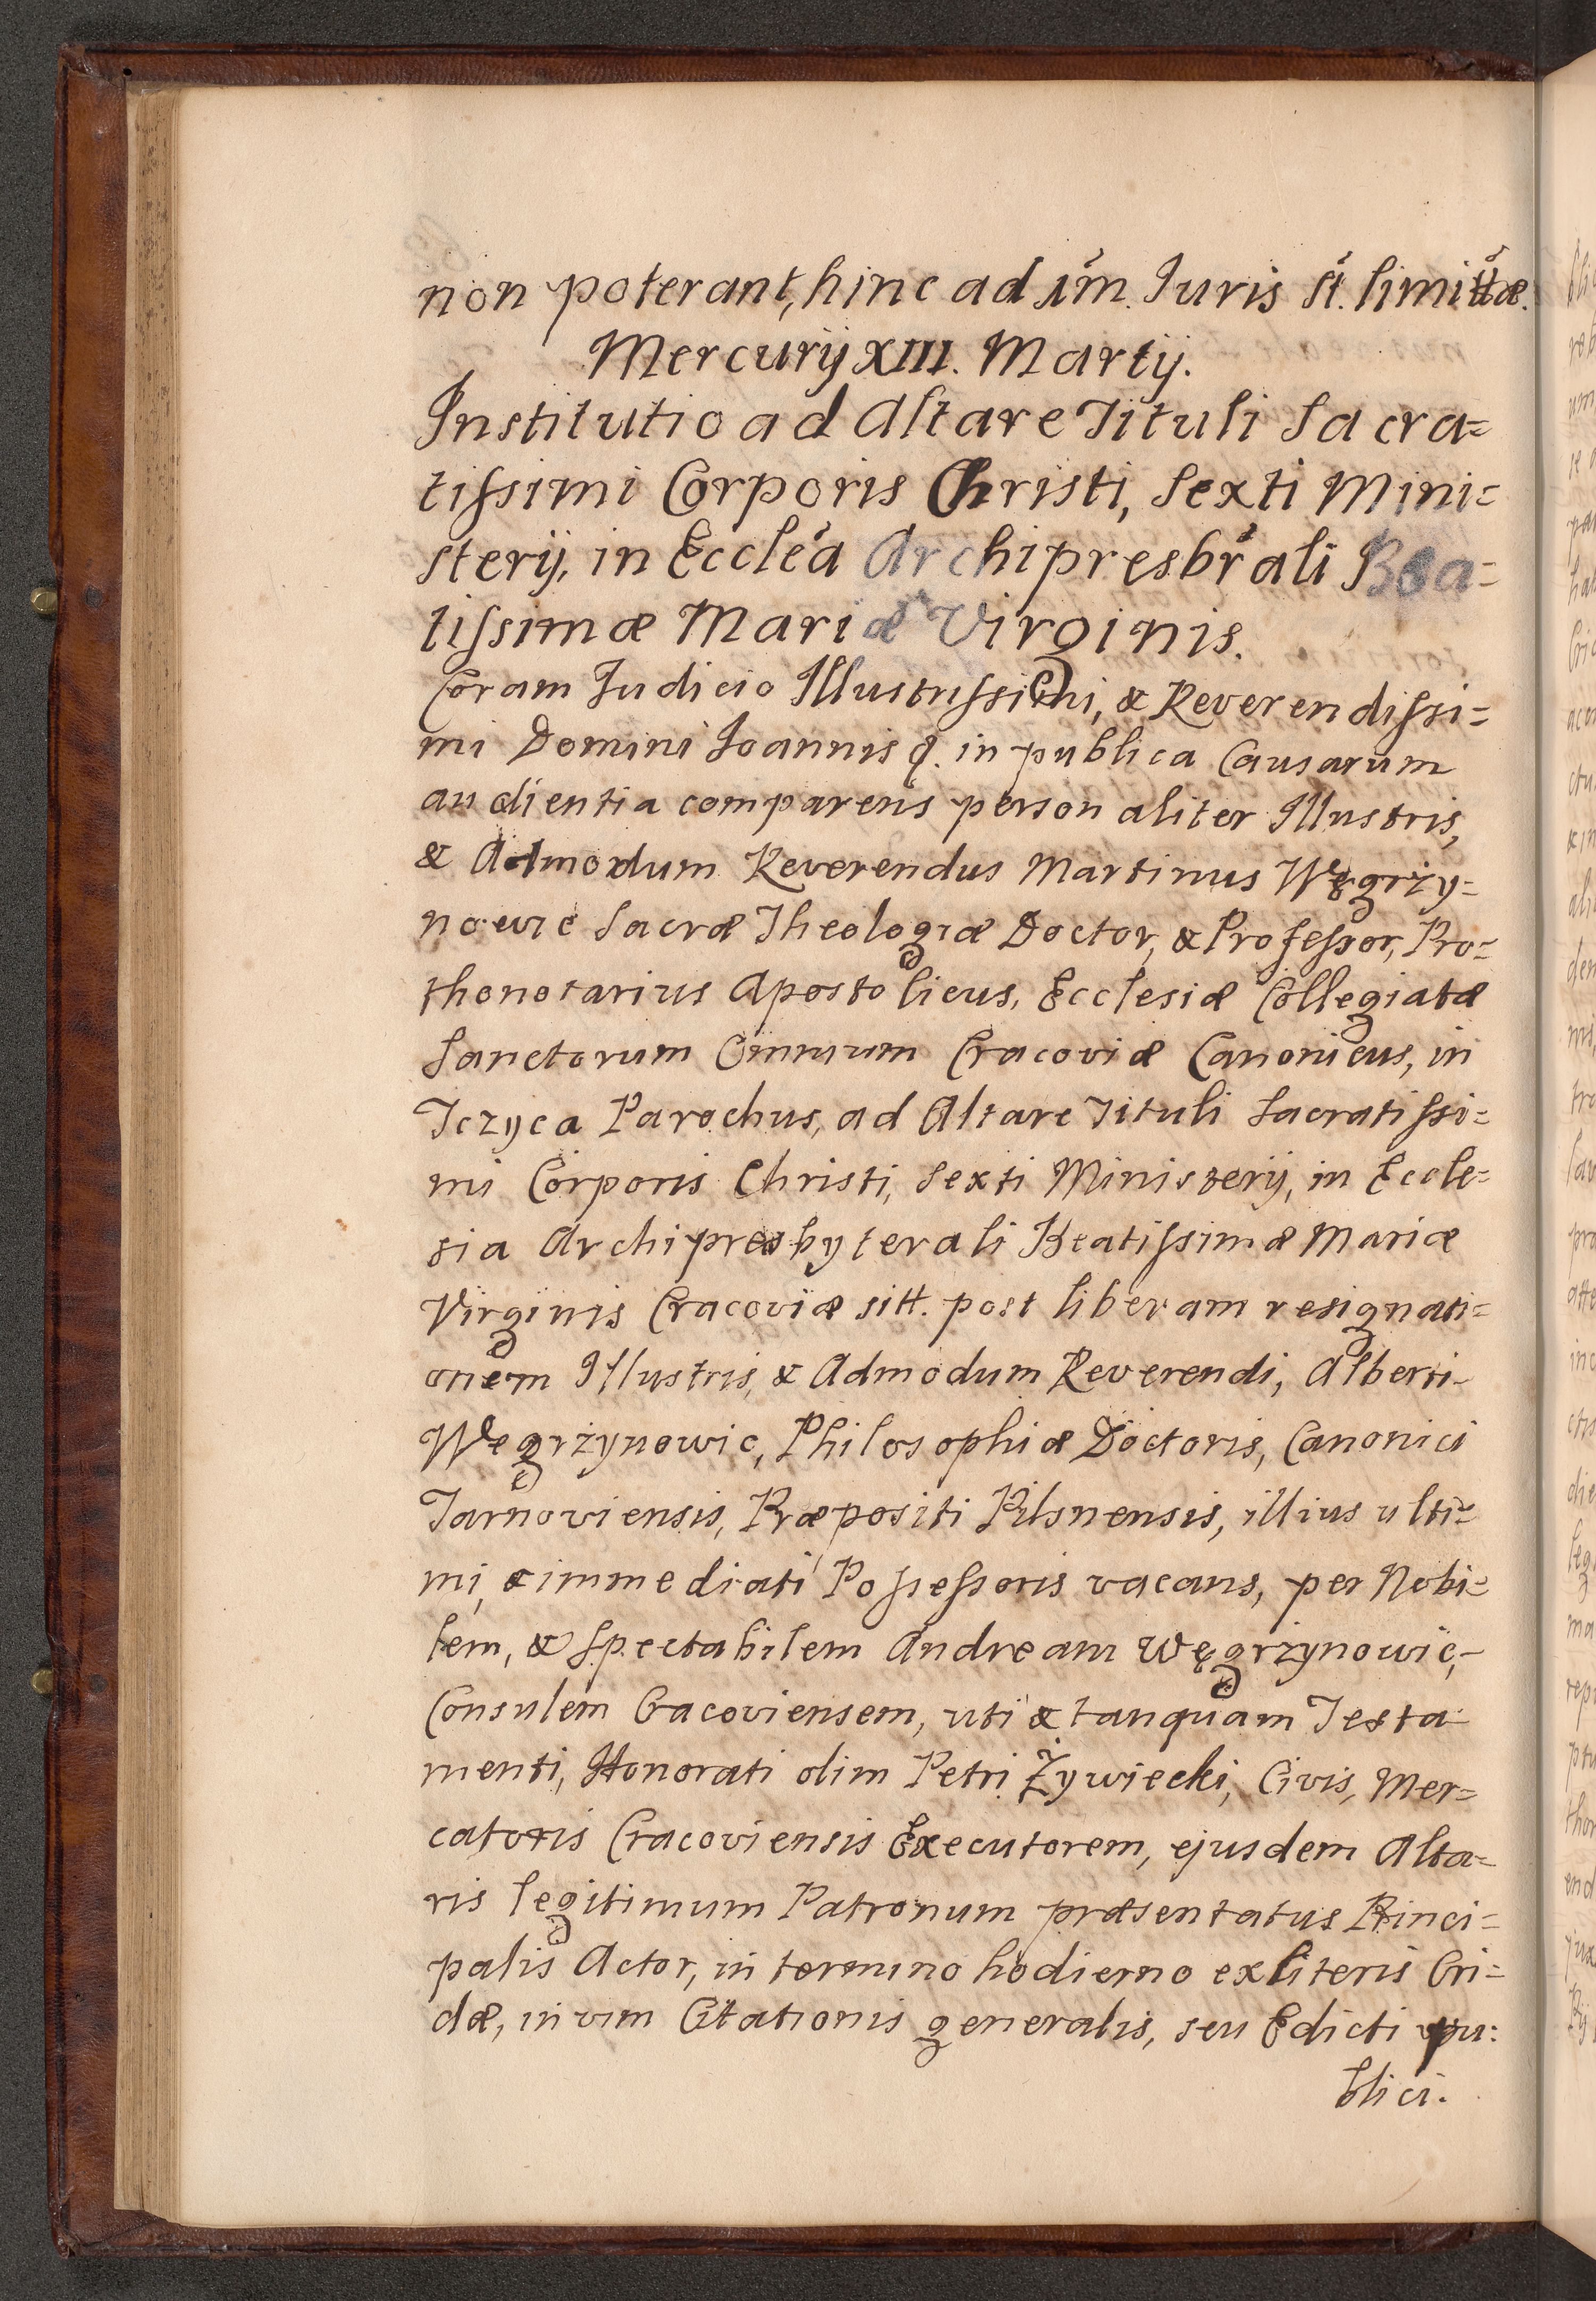 non poterant, hinc ad im̃. Iuris st̃. limittæ.
Mercurij XIII. Martij.
Institutio ad Altare Tituli Sacra=
tissimi Corporis Christi, Sexti Mini=
sterij, in Eccleã Archipresbr̃ali Bea=
tissimæ Mariæ Virginis.
Coram Iudicio Illustrissimi, & Reverendissi=
mi Domini Ioannis q. in publica Causarum
audientia comparens personaliter Illustris,
& Admodum Reverendus Martinus Węgrży=
nowic Sacræ Theologiæ Doctor, & Professor, Pro=
thonotarius Apostolicus, Ecclesiæ Collegiatæ
Sanctorum Omnium Cracoviæ Canonicus, in
Iczyca Parochus, ad Altare Tituli Sacratissi=
mi Corporis Christi, Sexti Ministerij, in Eccle=
sia Archipresbyterali Beatissimæ Mariæ
Virginis Cracoviæ sitt. post liberam resignati=
onem Illustris, & Admodum Reverendi, Alberti
Węgrżynowic, Philosophiæ Doctoris, Canonici
Tarnoviensis, Præpositi Pilsnensis, illius ulti=
mi, & immediati Possessoris vacans, per Nobi=
lem, & Spectabilem Andream Węgrżynowic,
Consulem Cracoviensem, uti & tanquam Testa
menti, Honorati olim Petri Żywiecki, Civis, Mer=
catoris Cracoviensis Executorem, ejusdem Alta=
ris legitimum Patronum præsentatus Princi=
palis Actor, in termino hodierno ex literis Cri=
dæ, in vim Citationis generalis, seu Edicti pu:
blici.